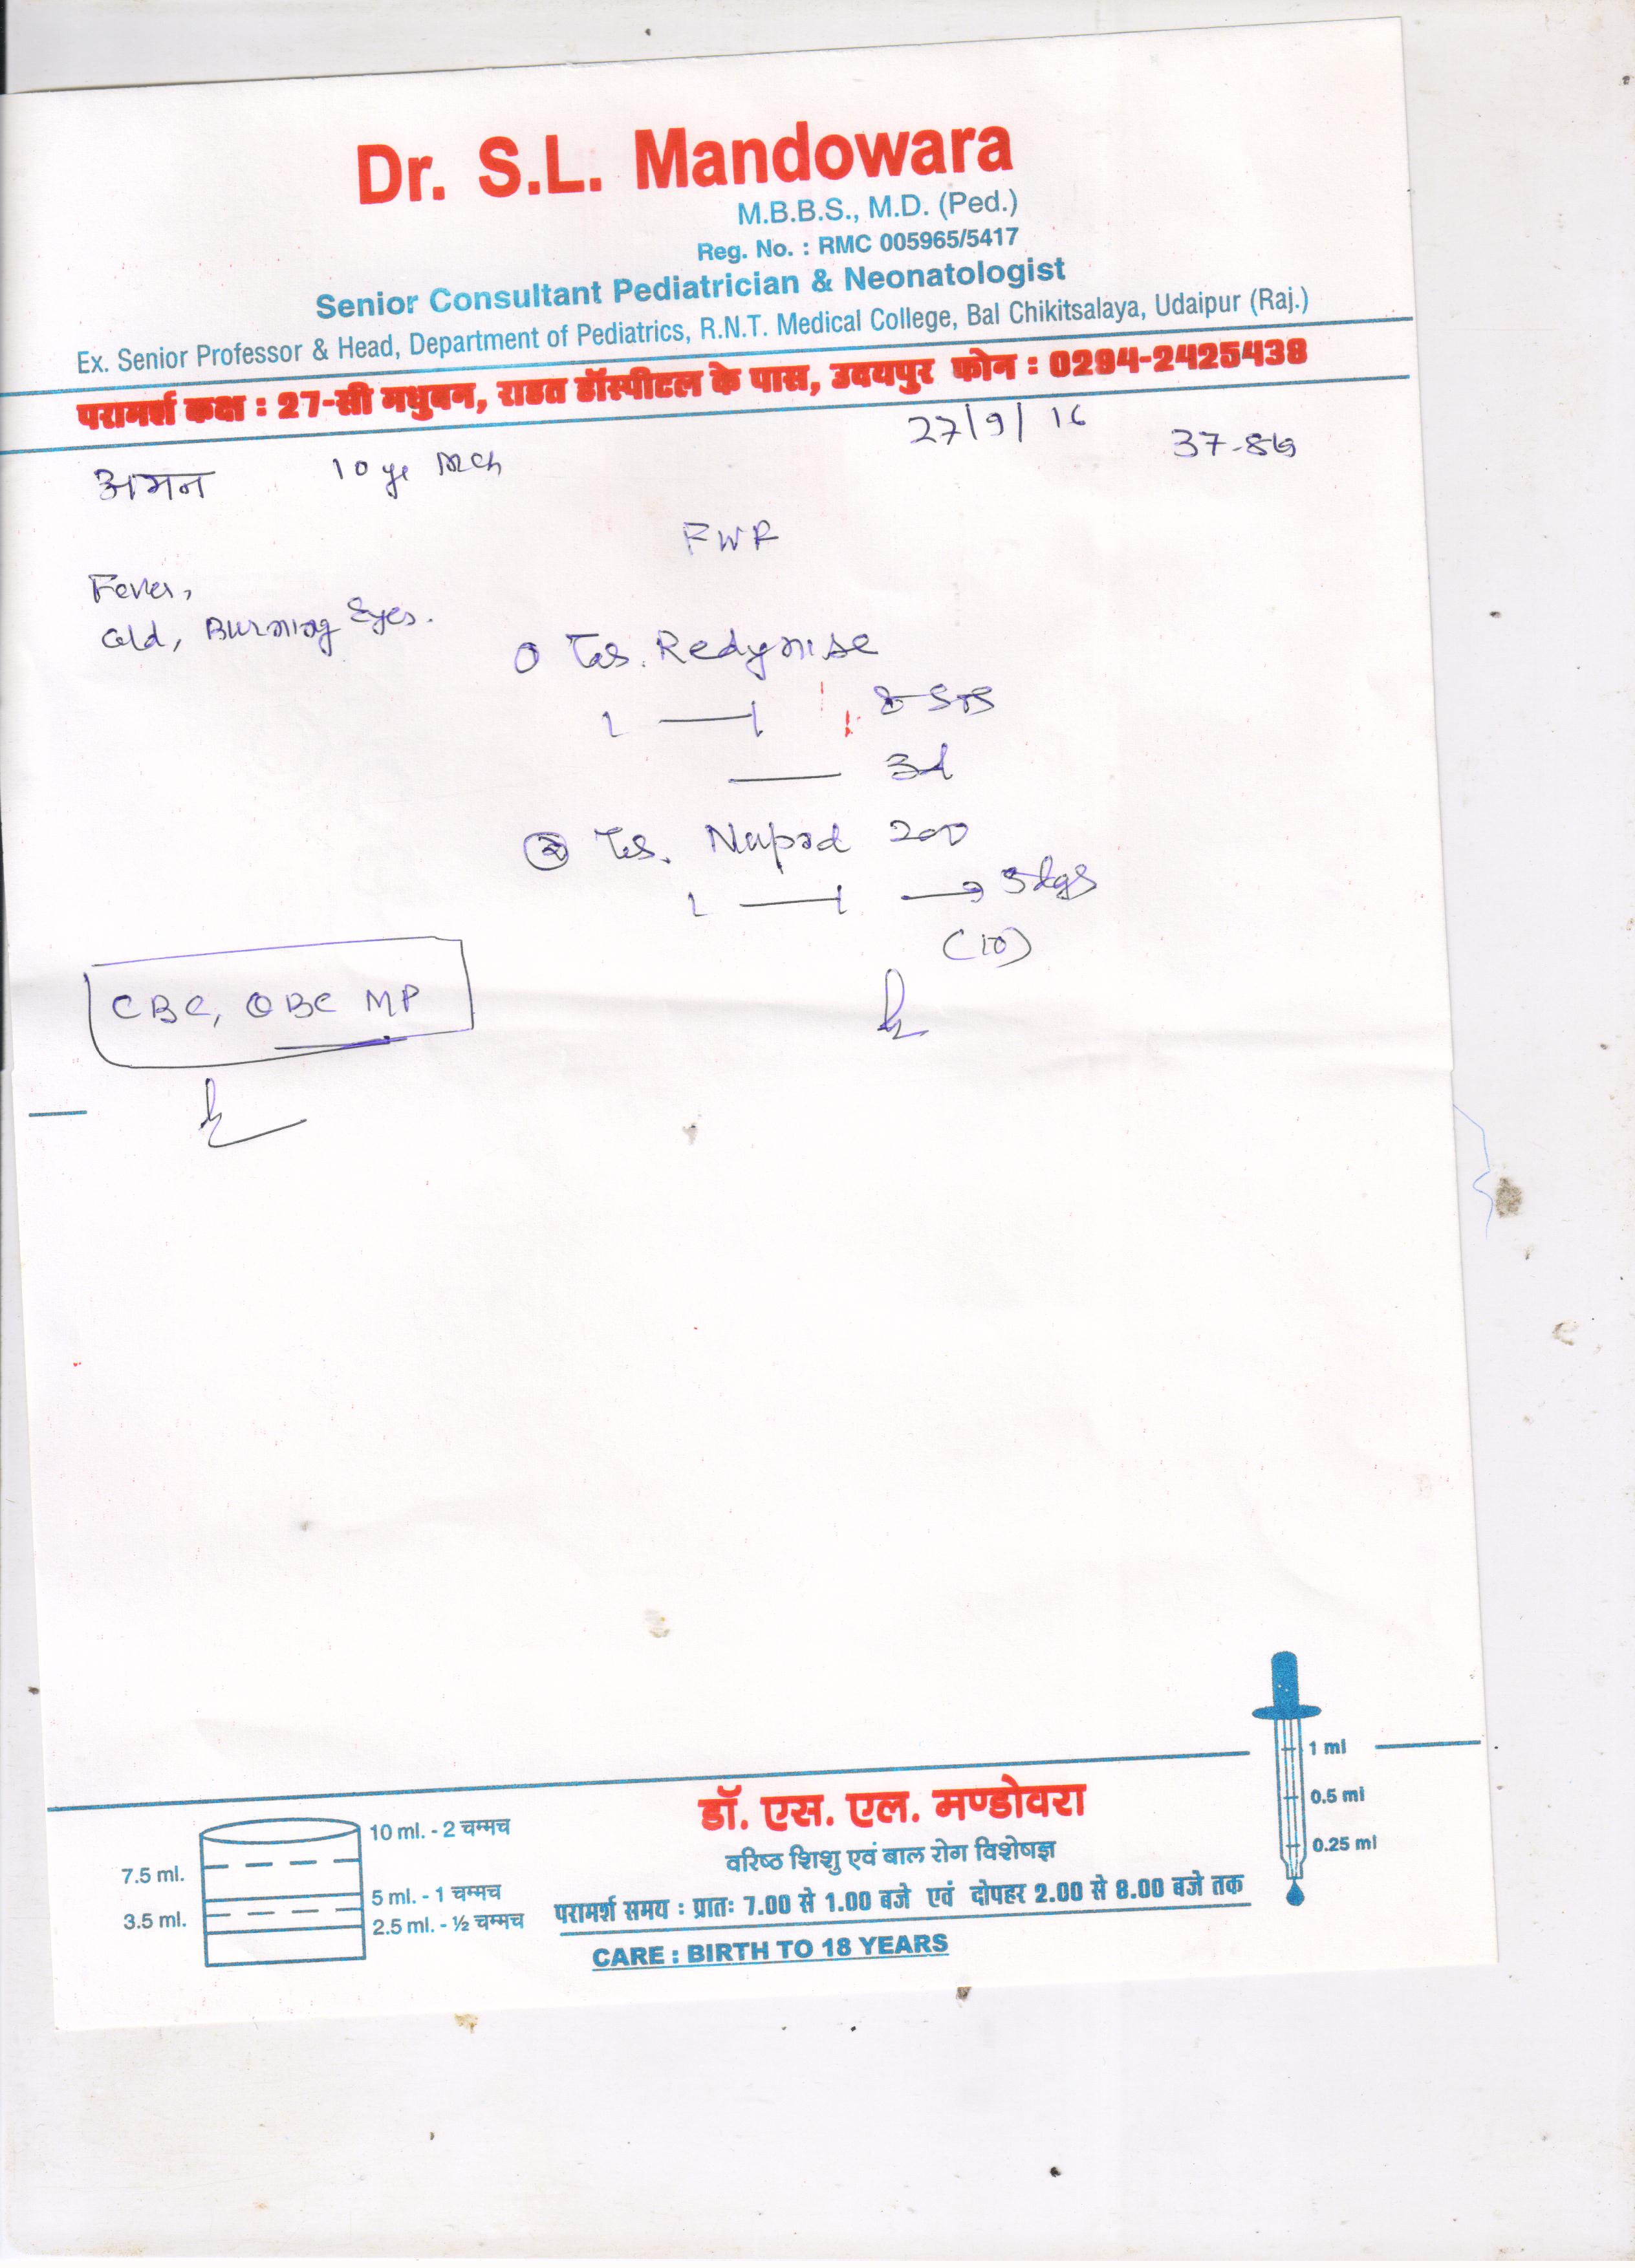 Dr. S.L. Mandowara
M.B.B.S., M.D. (Ped.)
Reg. No. : RMC 005965/5417
Senior Consultant Pediatrician & Neonatologist
Ex. Senior Professor & Head, Department of Pediatrics, R.N.T. Medical College, Bal Chikitsalaya, Udaipur (Raj.)
परामर्श कक्ष : 27-सी मधुबन, राहत हॉस्पीटल के पास, उदयपुर फोन : 0294-2425438
27/9/16
अमन 10 yr MCh
Fever,
Cold, Burning Eyes.
① Tab. Redynise
1 — 1 8-8
3d
② Tab. 200
1 — 1 → 5 dys
(10)
CBC, QBC MP
10 ml. - 2 चम्मच
7.5 ml.
5 ml. - 1 चम्मच
3.5 ml.
2.5 ml. - ½ चम्मच
डॉ. एस. एल. मण्डोवरा
वरिष्ठ शिशु एवं बाल रोग विशेषज्ञ
परामर्श समय : प्रातः 7.00 से 1.00 बजे एवं दोपहर 2.00 से 8.00 बजे तक
CARE : BIRTH TO 18 YEARS
1 ml
0.5 ml
0.25 ml